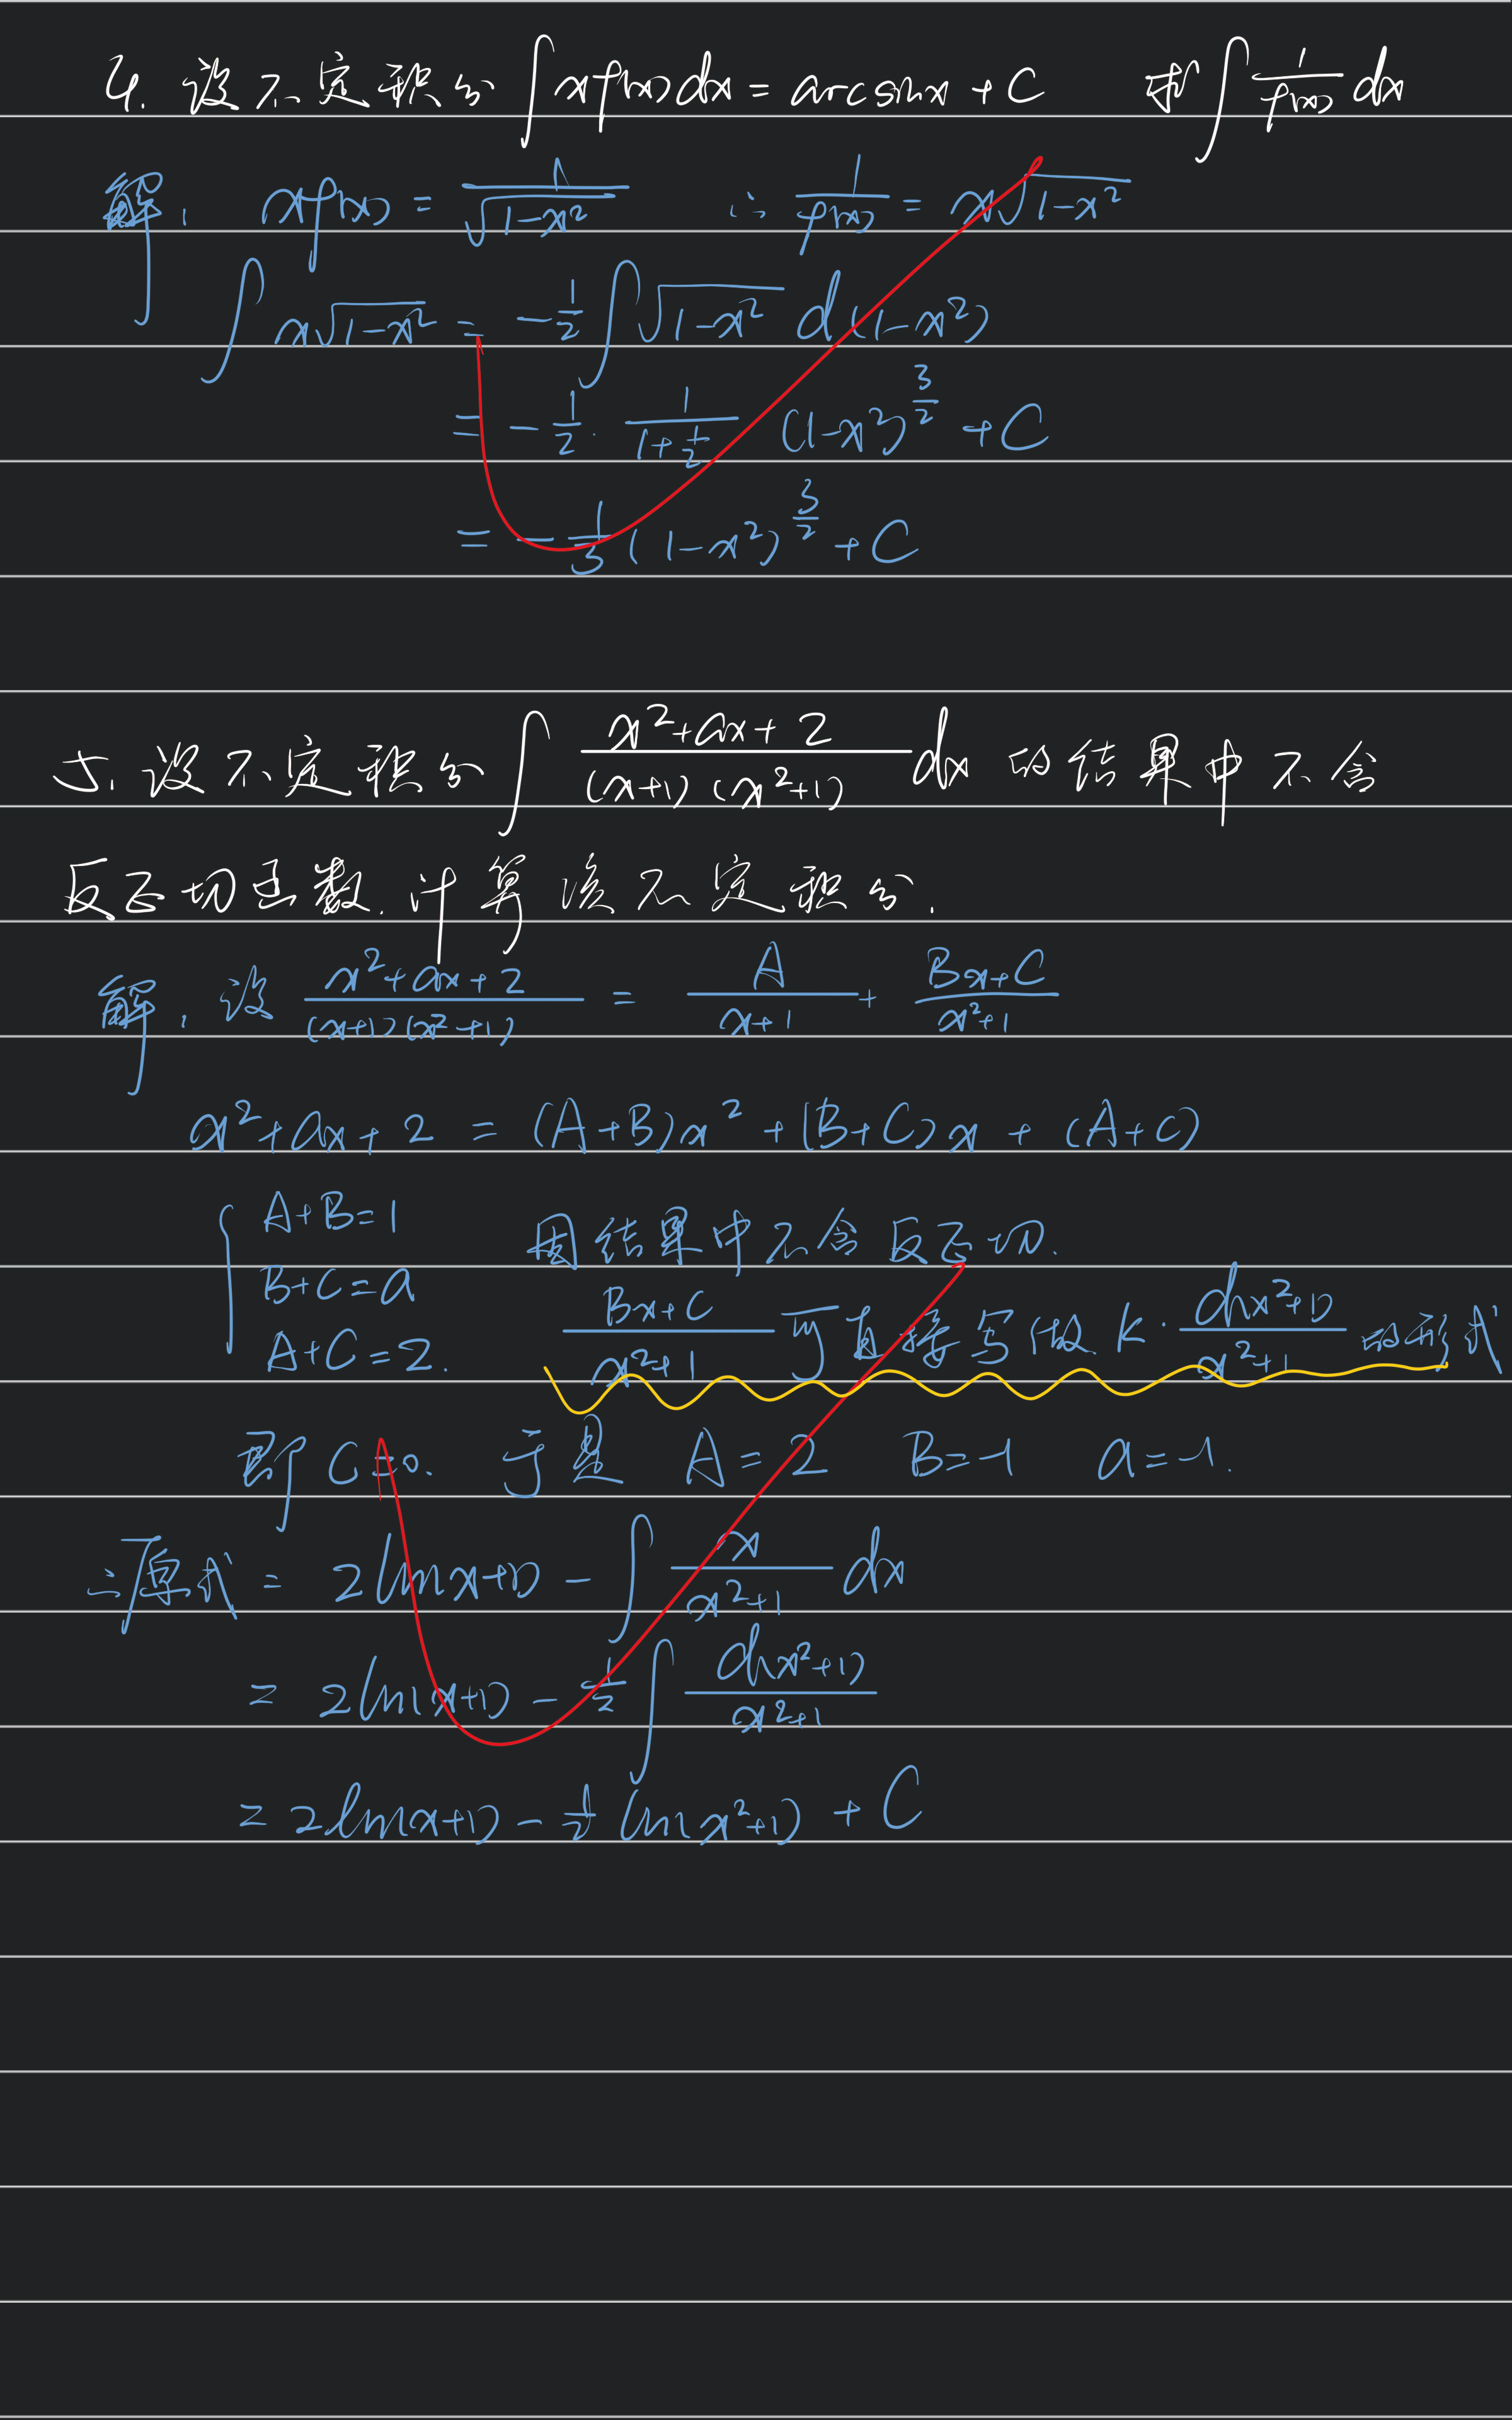 4. 设不定积分 ∫xf(x)dx = arcsinx + C 求∫1/f(x) dx
解: xf(x) = 1/√(1-x²) ∴ 1/f(x) = x√(1-x²)
∫x√(1-x²) = -1/2 ∫√(1-x²) d(1-x²)
= -1/2 · 1/(1+1/2) (1-x²)^(3/2) + C
= -1/3 (1-x²)^(3/2) + C
五. 设不定积分 ∫ (x²+ax+2)/((x+1)(x²+1)) dx 的结果中不含
反正切函数. 计算该不定积分.
解: 设 (x²+ax+2)/((x+1)(x²+1)) = A/(x+1) + (Bx+C)/(x²+1)
x²+ax+2 = (A+B)x² + (B+C)x + (A+C)
{ A+B=1 因结果中不含反正切.
B+C=a (Bx+C)/(x²+1) 可直接写做 k· d(x²+1)/(x²+1) 的形式
A+C=2.
即 C=0. 于是 A=2 B=-1 a=-1.
∴原式 = 2ln(x+1) - ∫ x/(x²+1) dx
= 2ln(x+1) - 1/2 ∫ d(x²+1)/(x²+1)
= 2ln(x+1) - 1/2 ln(x²+1) + C